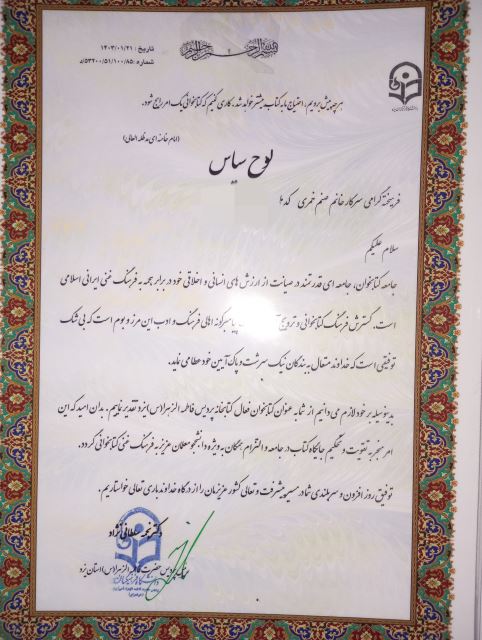 بسم الله الرحمن الرحیم
تاریخ : ۱۴۰۳/۰۱/۲۱
شماره :۵۳۲۰۰/۵۱/۱۰۰/۸۵/د
هر چه پیش برویم، احتیاج ما به کتاب بیشتر خواهد شد، کاری کنیم که کتابخوانی یک امر رایج شود.
(امام خامنه ای مدظله العالی)
لوح سپاس
فرهیخته گرامی سرکار خانم صنم خمری کد ملی
سلام علیکم
جامعه کتابخوان، جامعه ای قدرتمند در صیانت از ارزش های انسانی و اخلاقی خود در برابر هجمه به فرهنگ غنی ایرانی اسلامی
است. گسترش فرهنگ کتابخوانی و ترویج پیامبرگونه اهالی فرهنگ و ادب این مرز و بوم است که بی شک
توفیقی است که خداوند متعال به بندگان نیک سرشت و پاک آیین خود عطا می نماید.
بدینوسیله بر خود لازم می دانیم از شما به عنوان کتابخوان فعال کتابخانه پردیس فاطمه الزهرا(س) یزد تقدیر نماییم. بدان امید که این
امر منجر به تقویت و تحکیم جایگاه کتاب در جامعه و التزام همگان به ویژه دانشجو معلمان عزیز به فرهنگ غنی کتابخوانی گردد.
توفیق روز افزون و سربلندی شما در مسیر پیشرفت و تعالی کشور عزیزمان را از درگاه خداوند باری تعالی خواستاریم.
دکتر نجمه سلطانی نژاد
پردیس حضرت فاطمه الزهرا(س) استان یزد